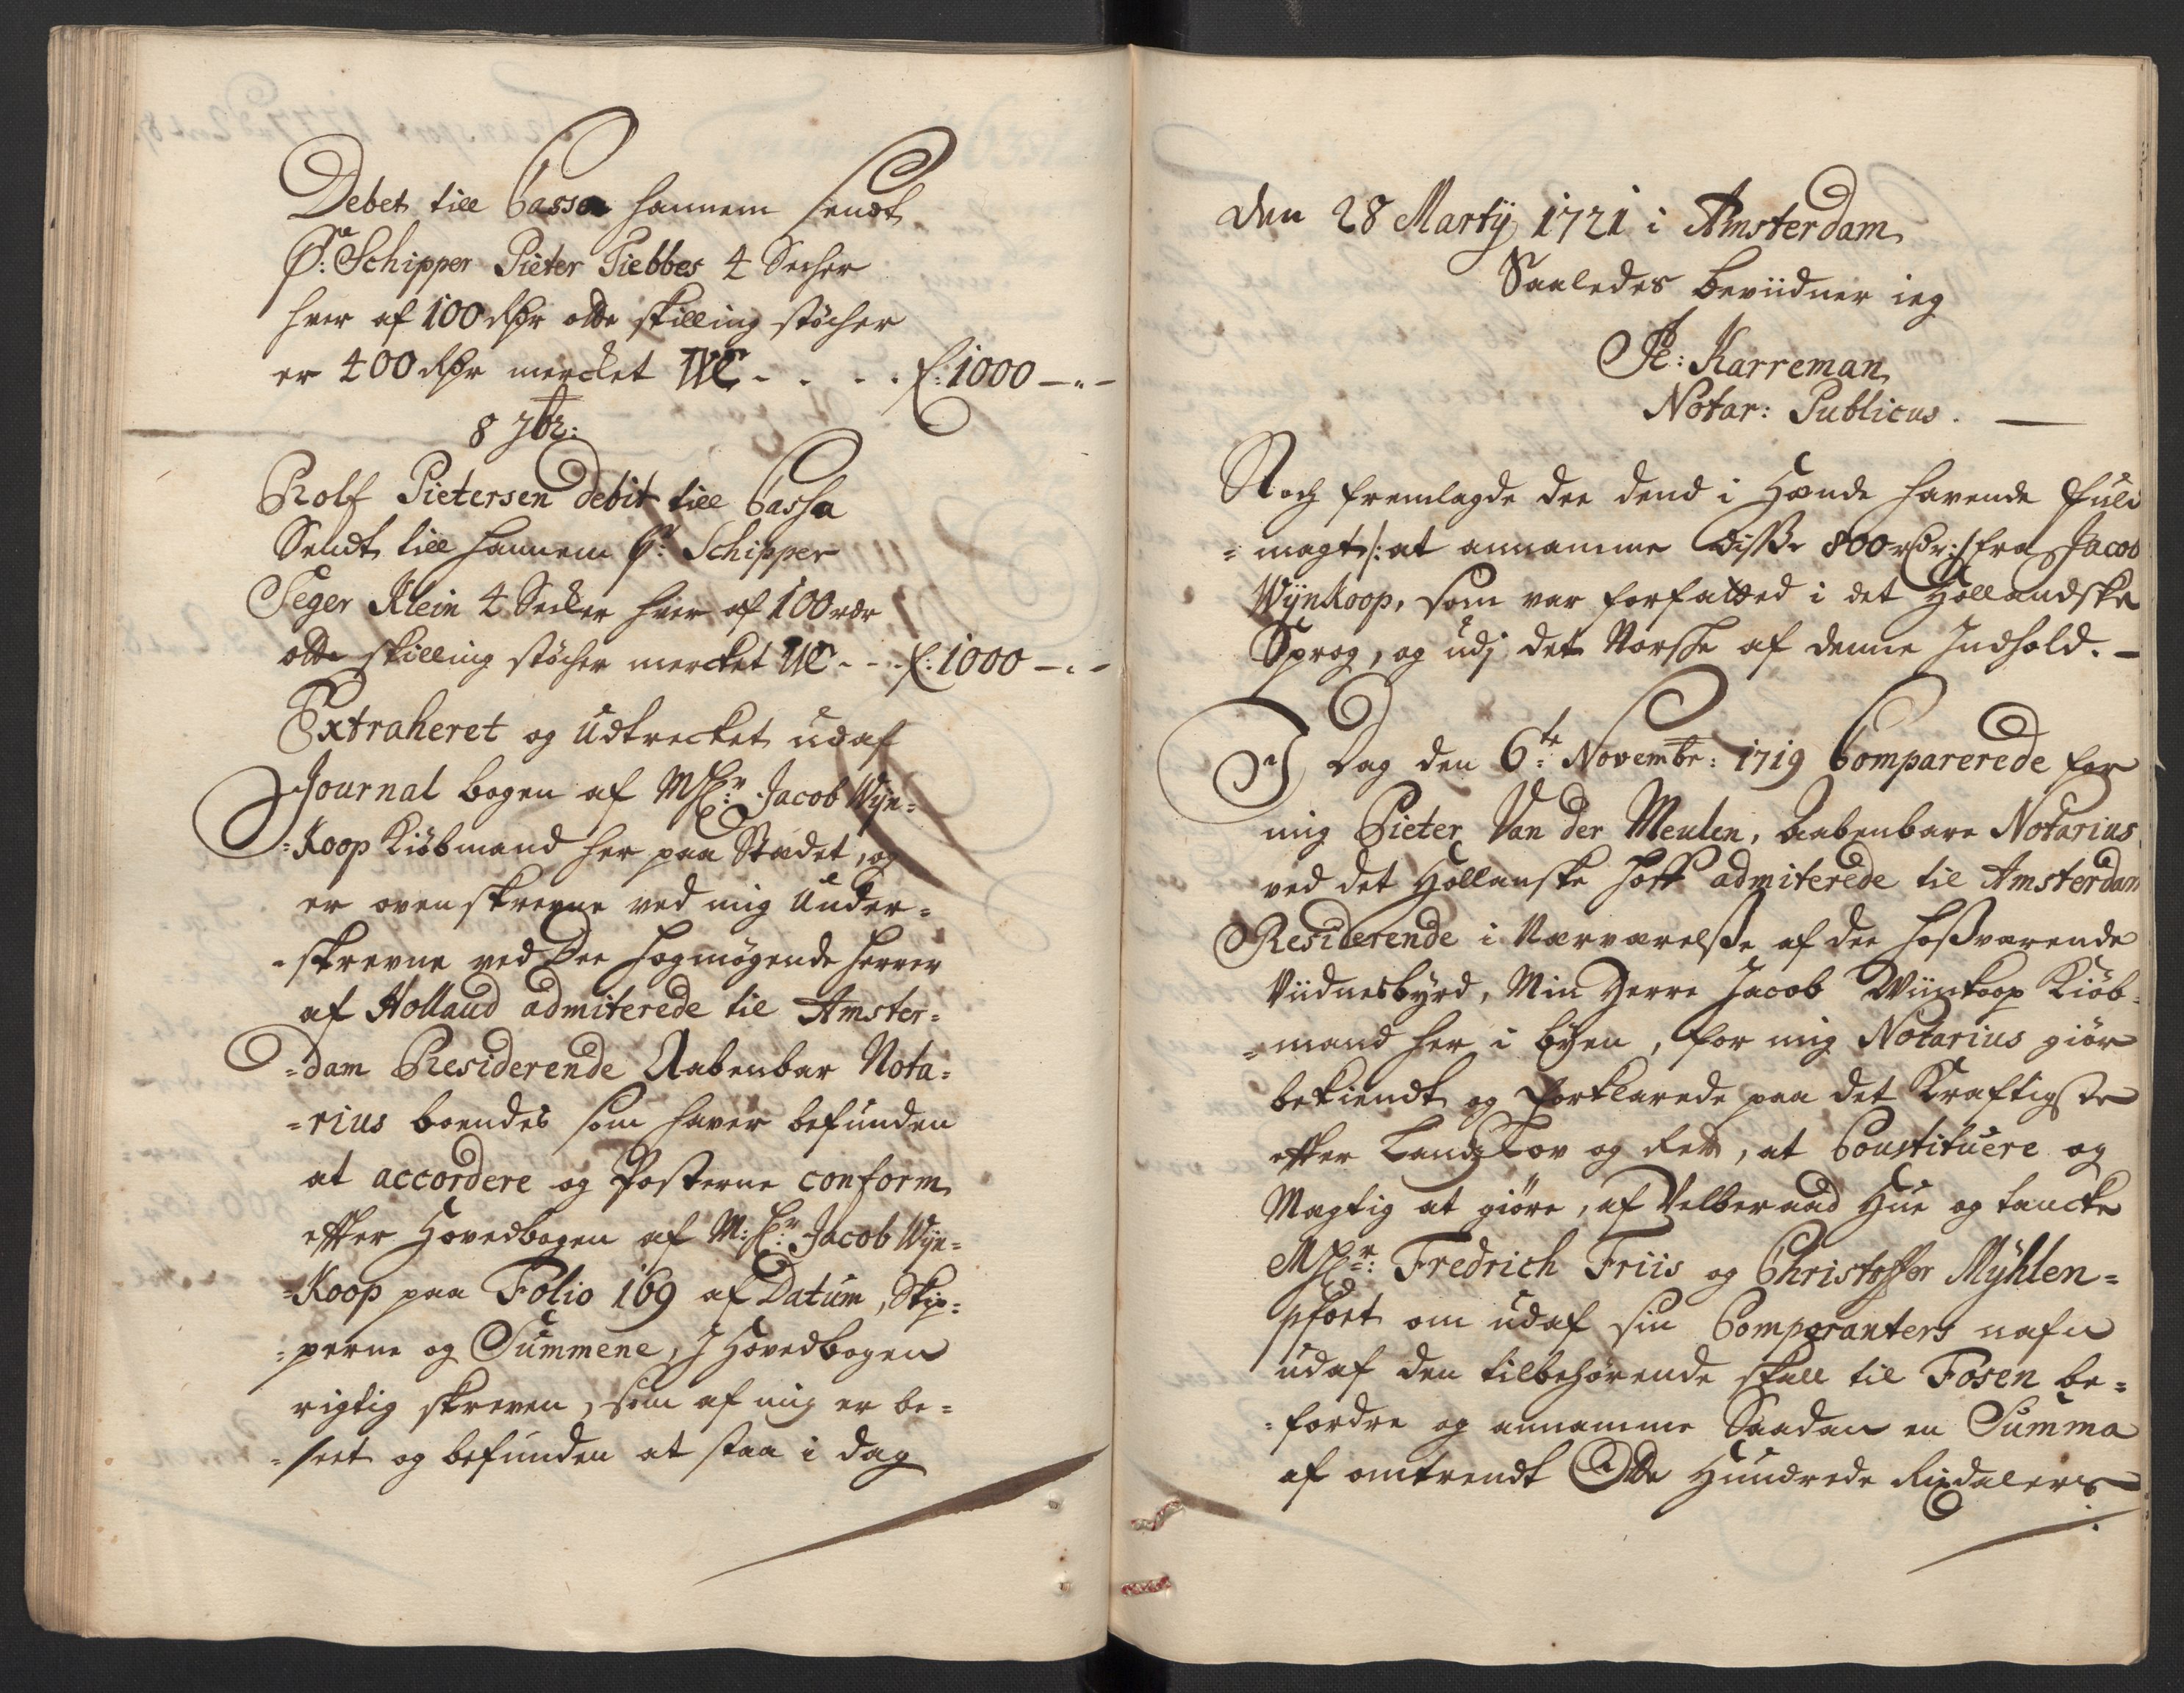 Debet till Cassa hannem sendt
Pr: Schipper Pieter Piebbes 4 Secher
hver af 100 Rdr otte skilling støcher
er 400 Rdr mercket WC - - - - f: 1000 - " -
8 7br:
Rolf Pietersen debit till Cassa
Sendt till hannem Pr: Schipper
Seger Klein 4 Secker hver af 100 rdr
otte skilling støcher mercket WC - - - f: 1000 - " -
Extraheret og Udtrecket udaf
Journal bogen af Mhr: Jacob Wijn=
=Koop Kiøbmand her paa Stædet, og
er ovenskrevne ved mig Under=
=skrevne ved Dee Høgmøgende Herrer
af Holland admiterede til Amster=
=dam Residerende Aabenbar Nota=
=rius boendes som haver befunden
at accordere og Posterne conform
effter Hovedbogen af M:hr: Jacob Wijn=
=Koop paa Folio 169 af Datum, Skip=
=perne og Summene, J Hovedbogen
rigtig skreven, som af mig er be=
=seet og befunden at staa i dag
den 28 Martij 1721 i Amsterdam
Saaledes beviidner ieg
Pe: Karreman
Notar: Publicus. —
Noch fremlagde dee dend i Hænde havende Fuld
=magt /: at annamme disse 800 rdr :/ fra Jacob
Wijnkoop, som var forfatted i det Hollandske
Sprog, og udj det Norsche af denne Indhold. -
J Dag den 6te: Novembr: 1719 Comparerede for
mig Pieter Van der Meulen, Aabenbare Notarius
ved det Hollanske Hoff admiterede til Amsterdam
Residerende i Nærværelße af dee hoßværende
Viidnesbyrd, Min Herre Jacob Wiinkoop Kiøb=
=mand her i byen, for mig Notarius giør
bekiendt og forklarede paa det Kraftigste
effter Landz Lov og Ret, at Constituere og
Magtig at giøre, af Velberaad Hue og tancke
Mhr: Fredrich Friis og Christoffer Mÿhlen=
pfort om udaf sin Comparanters nafn
udaf den tilbehørende skall til Fosen be=
=fordre og annamme Saadan en Summa
af omtrendt Otte Hundrede Rixdalers